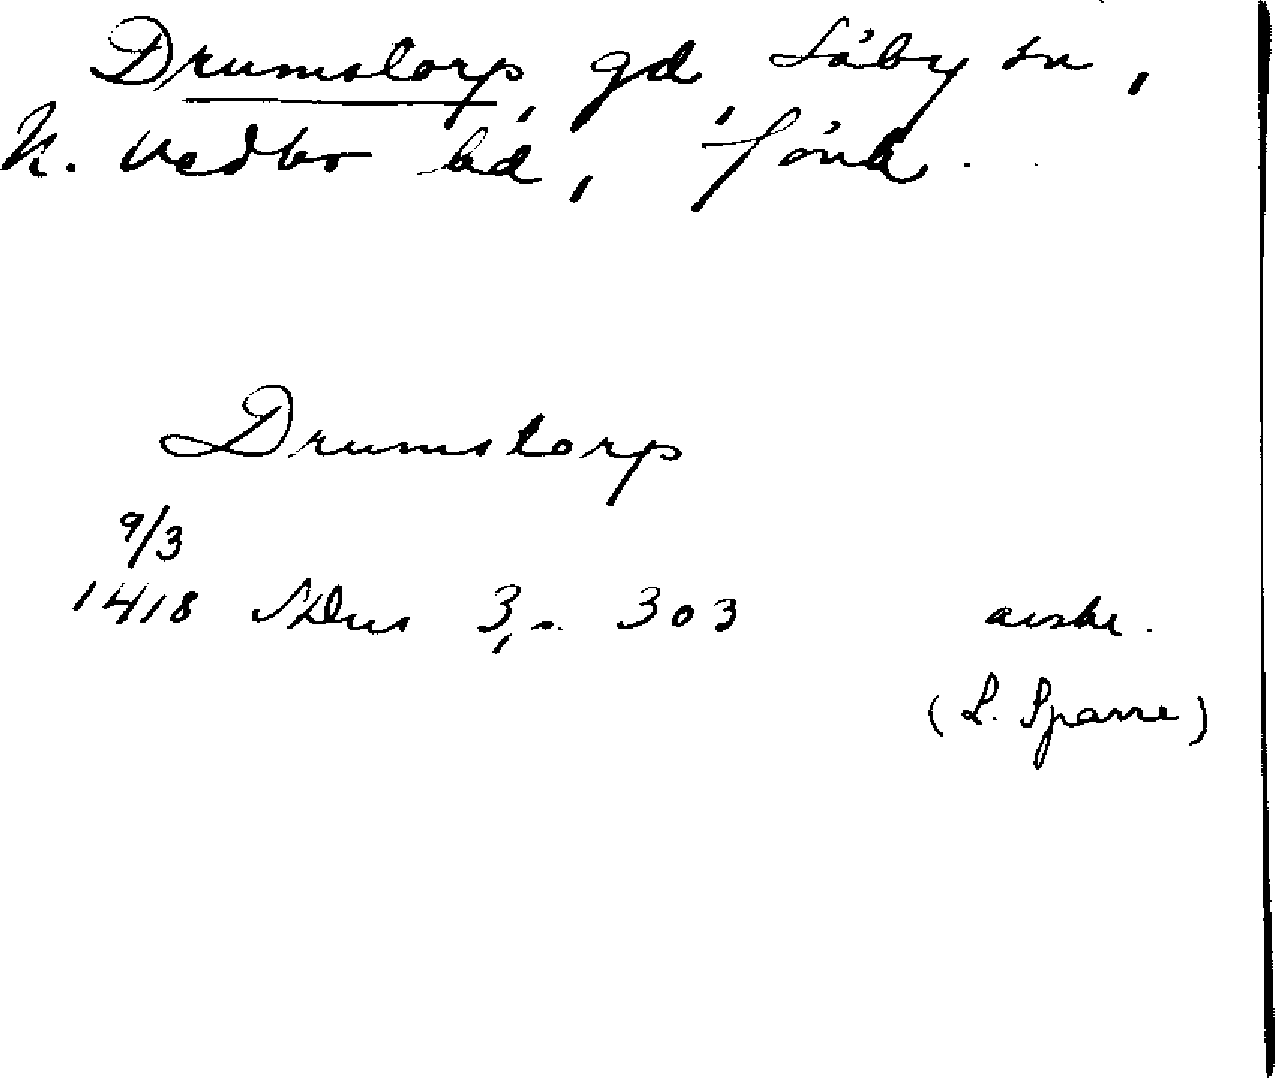 Drumstorp, gd, Säby sn,
N. Vedbo hd, Jönk.
Drumstorp
9/3
1418 SDns 3, s. 303 avskr.
(S. Sparre)